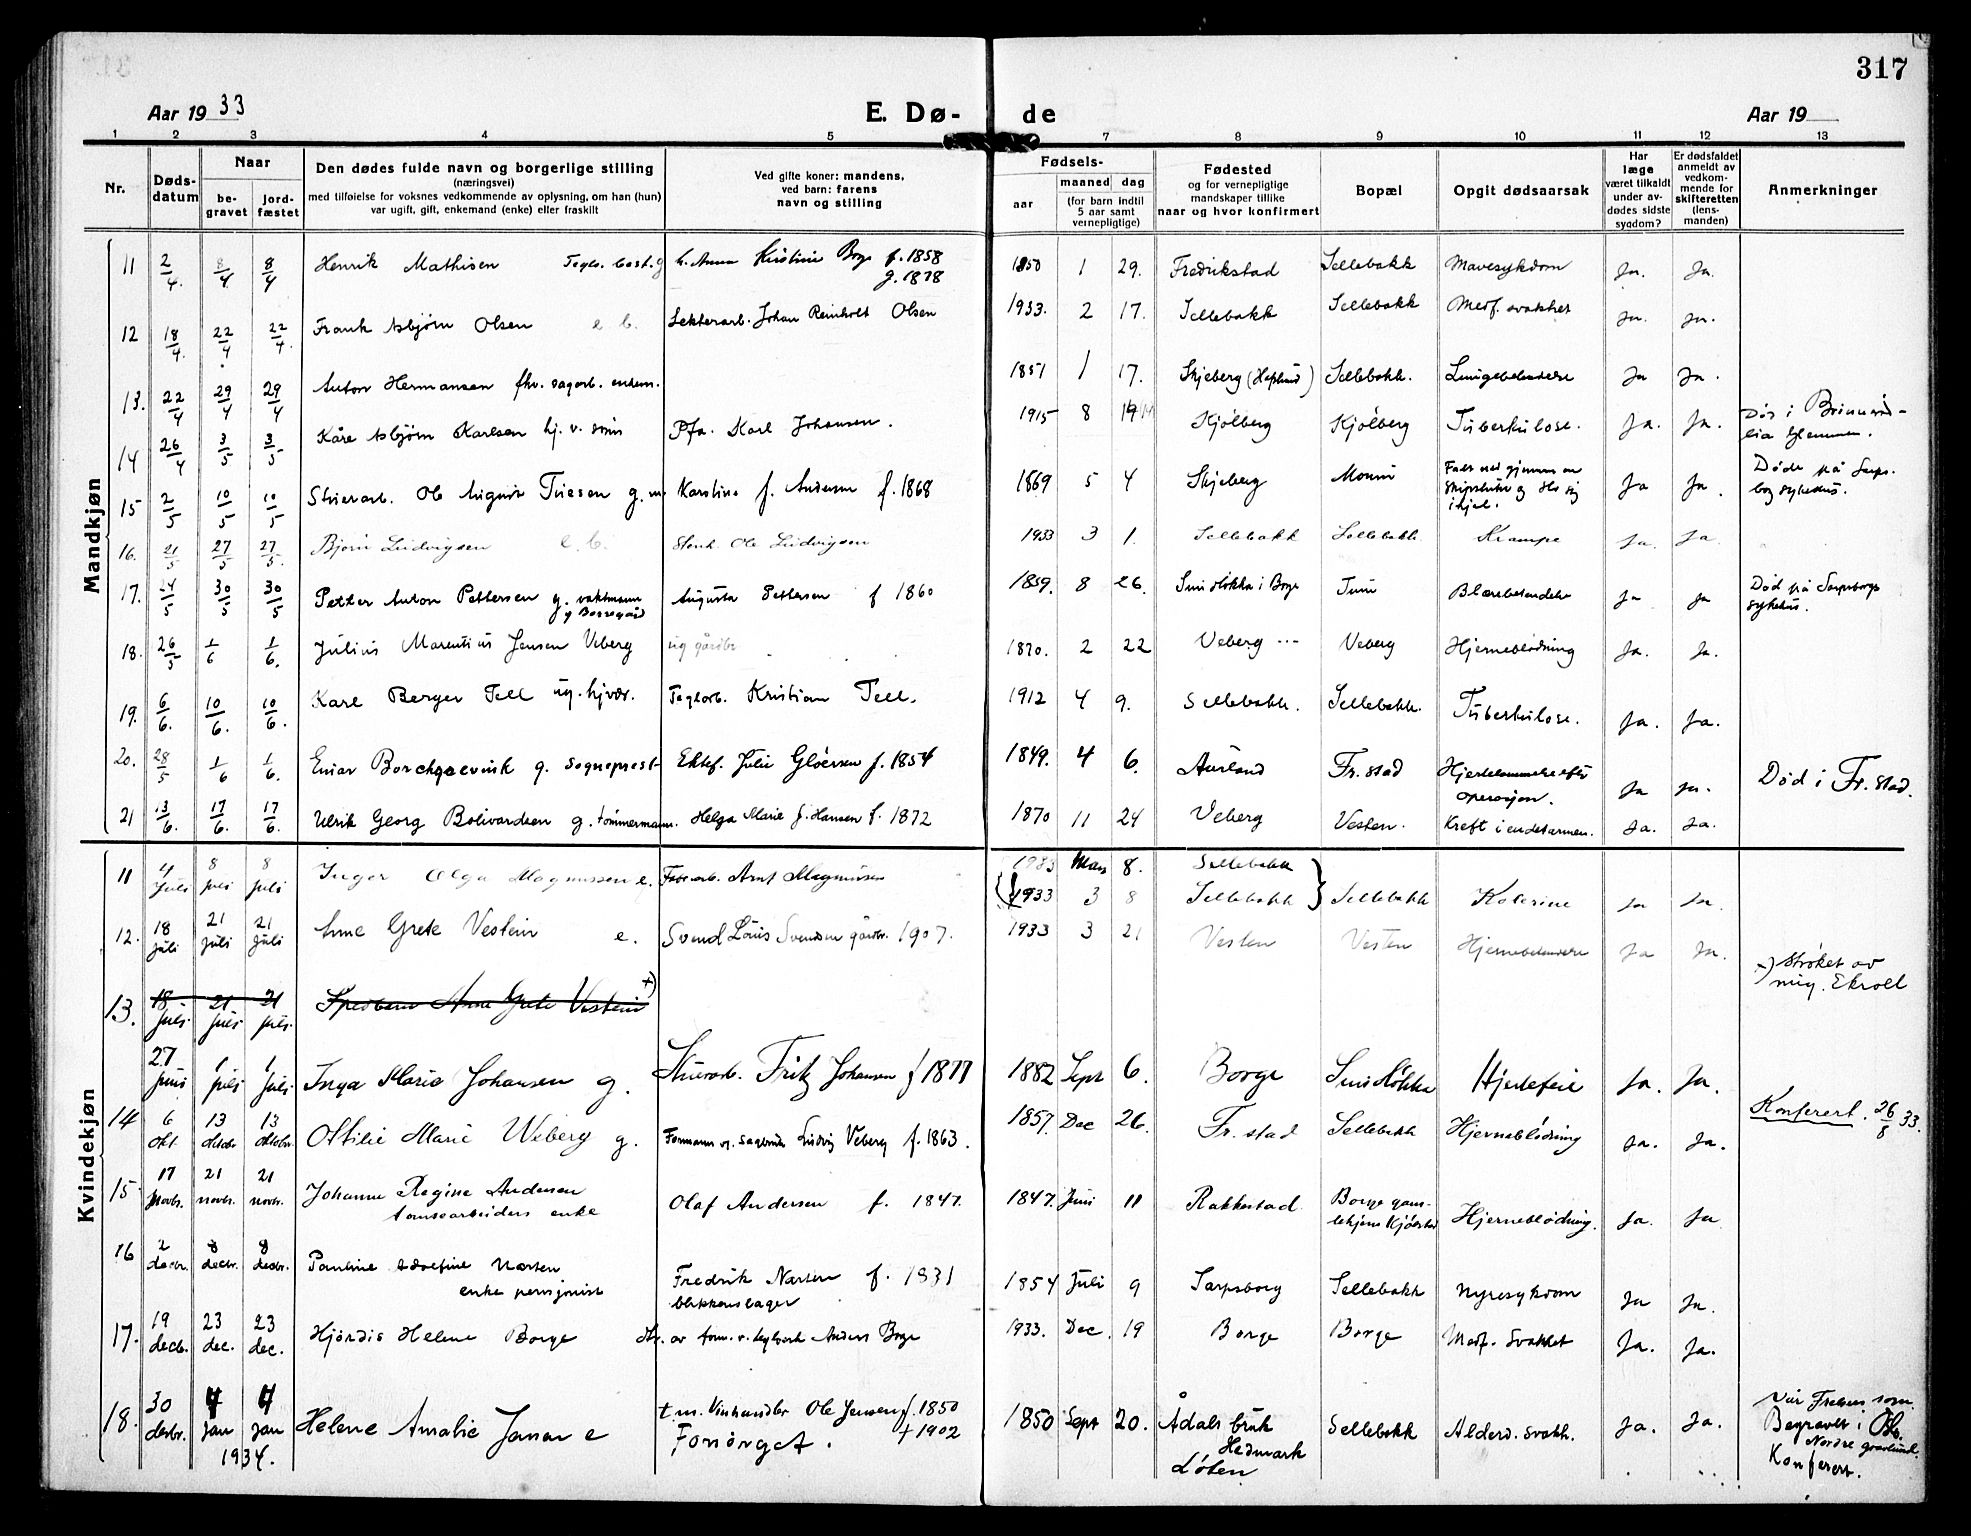 317
Aar 19 33
E. Dø-
de
Aar 19
1 2 3 4 5 7 8 9 10 11 12 13
Nr.
Døds-
datum
Naar
be-
gravet
jord-
fæstet
Den dødes fulde navn og borgerlige stilling
(næringsvei)
med tilføielse for voksnes vedkommende av oplysning, om han (hun)
var ugift, gift, enkemand (enke) eller fraskilt
Ved gifte koner: mandens,
ved barn: farens
navn og stilling
Fødsels-
aar
maaned dag
(for barn indtil
5 aar samt
vernepligtige)
Fødested
og for vernepligtige
mandskaper tillike
naar og hvor konfirmert
Bopæl
Opgit dødsaarsak
Har
læge
været tilkaldt
under av-
dødes sidste
sygdom?
Er dødsfaldet
anmeldt av
vedkom-
mende for
skifteretten
(lens-
manden)
Anmerkninger
Mandkjøn
11 2/4. 8/4 8/4 Henrik Mathisen Kristine Borge f. 1858 1850 1 29. Fredrikstad Sellebakk Mavesykdom Ja. Ja.
g. 1878
12 18/4. 22/4 22/4. Frank Asbjørn Olsen e b. Johan Reinholt Olsen 1933. 2 17. Sellebakk Sellebakk Medf. svakhet Ja. Ja.
13. 22/4 29/4 29/4 Anton Hermansen fhv. sagarb. enkem. 1851 1 17. Skjeberg Sellebakk. Lungebetendelse Ja Ja.
14 26/4 3/5 3/5 Kåre Asbjørn Karlsen hj. v. sønn Karl Johansen. 1915 8 19 Kjølberg Kjølberg Tuberkulose. Ja. Ja. Død i
Glemmen.
15 2/5 10/5 10/5 Ole August g. m. Karoline f. Andersen f. 1868 1869 5 4 Skjeberg Moum Falt ned gjennem en
skipsluke og slo sig
ihjel. Ja Ja. Døde på Sarps-
borg sykehus.
16. 21/5 27/5 27/5. Bjørn Ludvigsen e. b. Stenh. Ole Ludvigsen 1933 3 1. Sellebakk Sellebakk Krampe Ja. Ja.
17. 24/5 30/5 30/5 Petter Anton Pettersen g. vaktmann
Augusta Pettersen f 1860 1859. 8 26. i Borge Tune Blærebetendelse Ja Ja Død på Sarpsborg
sykehus.
18. 26/5 1/6 1/6. Julius Marentius Jensen Veberg ug gårdbr. 1870. 2 22 Veberg Veberg Hjerneblødning Ja. Ja.
19. 6/6. 10/6. 10/6. Karl Berger Tell ug. Teglarb. Kristian Tell. 1912 4 9. Sellebakk. Sellebakk. Tuberkulose. Ja. Ja.
20. 28/5 1/6 1/6. Einar Borchgrevink g. Sogneprest Ektef. Julie Gløersen f. 1854 1849. 4 6. Aurland Fr.stad Hjertelammelse efter
operasjon. Ja Ja. Død i Fr.stad.
21 13/6. 17/6. 17/6. Ulrik Georg Bolivardsen g. tømmermann. Helga Marie f. Hansen f. 1872 1870 11 24 Veberg Vesten. Kreft i endetarmen. Ja. Ja.
Kvindekjøn
11 4 juli 8 juli 8 juli Inger Olga Magnussen e. Arnt Magnussen 1933 Mars 8. Sellebakk
1933 3 8 Sellebakk Sellebakk Kolerine Ja Ja.
12. 18 juli 21 juli 21 juli Anne Grete Vestein e. Svend Louis Svendsen gårdbr. 1907. 1933 3 21 Vesten Vesten Hjernebetendelse Ja Ja.
13. 18 juli. 21 juli. 21 juli. Spedbarn Anne Grete Vestein +)
+) Strøket av
mig. Ekroll
27 juni 1 juli 1 juli Inga Marie Johansen g. Fritz Johansen f 1877 1882 Sept 6. Borge Hjertefeil Ja. Ja.
14 6 okt. 13 oktobr. 13 oktobr. Ottilie Marie Weberg g. Formann v. sagbruk Ludvig Veberg f. 1863. 1857. Dec 26. Fr.stad Sellebakk Hjerneblødning Ja. Ja. Konferert. 26/8 33.
15 17 novbr. 21 novbr. 21 novbr. Johanne Regine Andersen
enke Olaf Andersen f. 1847. 1847. Juni 11 Rakkestad Borge gam-
lehjem Kjølstad Hjerneblødning. Ja. Ja
16 2 decbr. 8 decbr. 8 decbr. Pauline Adolfine Narten
enke pensjonist Fredrik Narten f. 1831
blikkenslager 1854 Juli 9 Sarpsborg Sellebakk Nyresykdom Ja Ja.
17. 19 decb. 23 dec. 23 dec. Hjørdis Helene Borge dtr. av form. v. teglverk Anders Borge 1933. Dec. 19 Borge Borge Medf. Svakhet Ja. Ja.
18. 30 decbr. 4 jan 4 jan
1934. Helene Amalie Jensen e t.m. Vinhandler Ole Jensen f. 1850
+ 1902
Forsørget. 1850 Sept 20. Ådals bruk
Hedmark
Løten Sellebakk Alderd. svakh. Ja. Ja. Frelses som.
Begravet i Oslo.
Nordre gravlund.
Konferert.